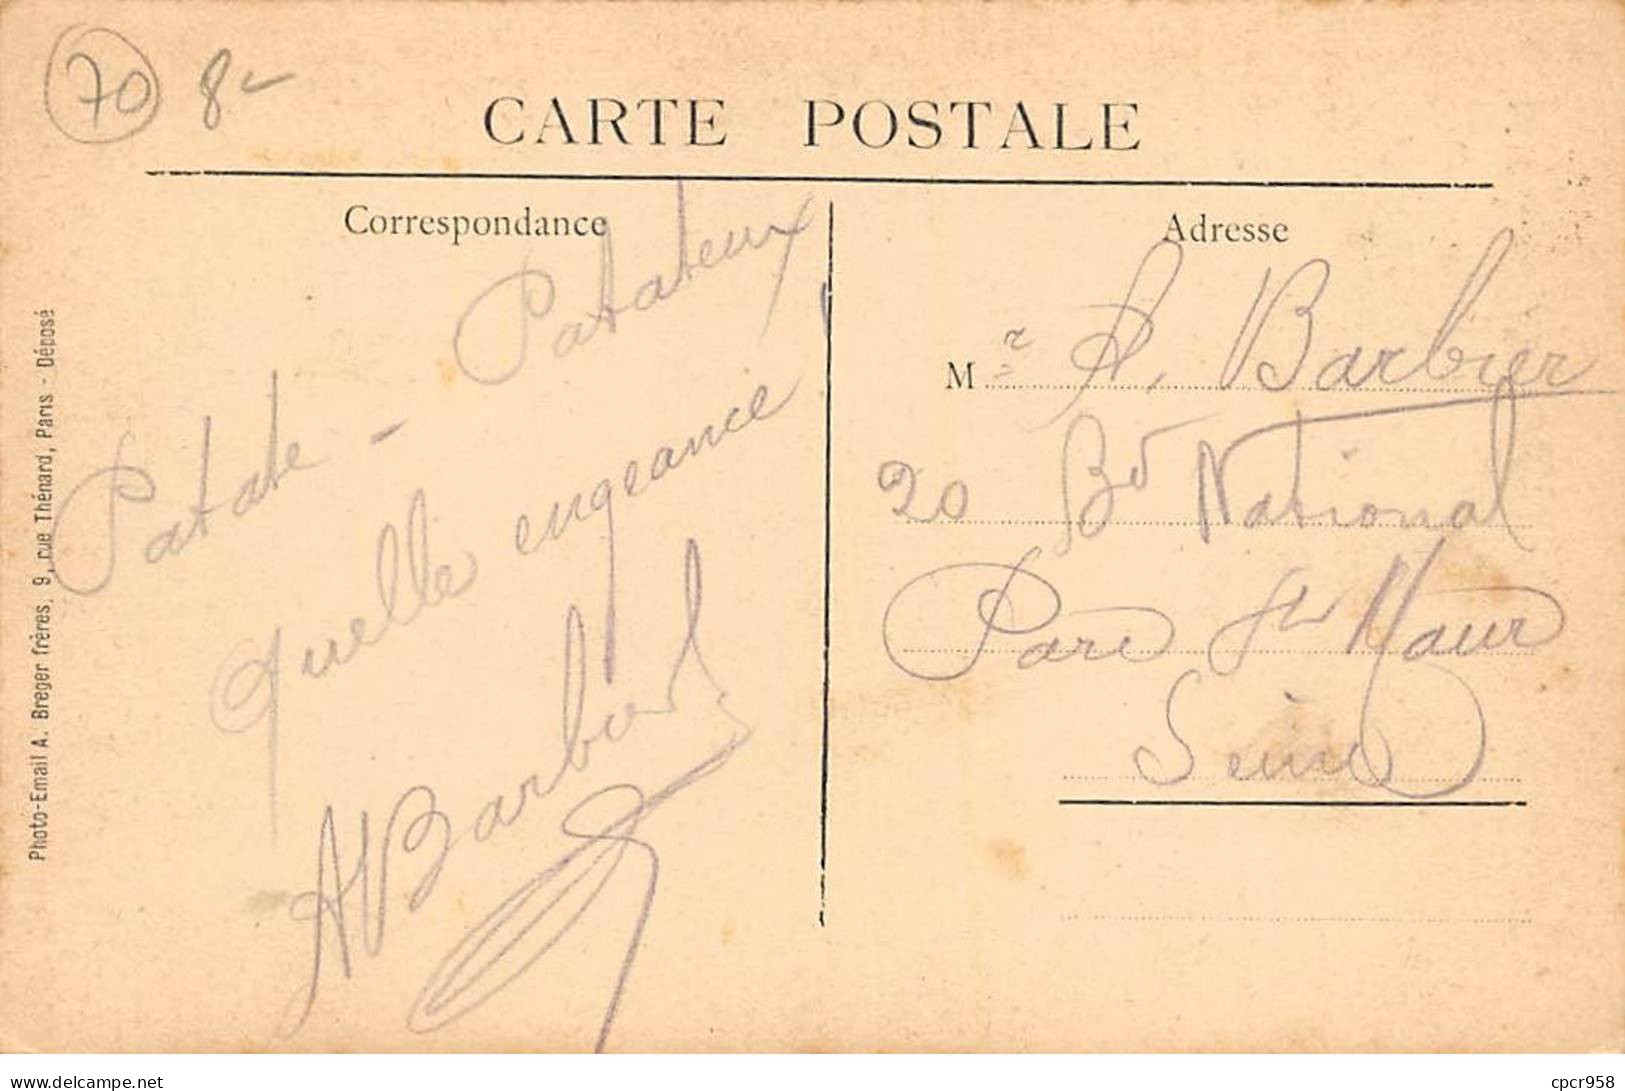 70 8-
CARTE POSTALE
Correspondance
Patate - Patateux
Quelle engeance !
ABarbier
Adresse
Mr A. Barbier
20 Bd National
Parc St Maur
Seine
Photo-Email A. Breger frères, 9, rue Thénard, Paris - Déposé
delcampe.net
cpcr958